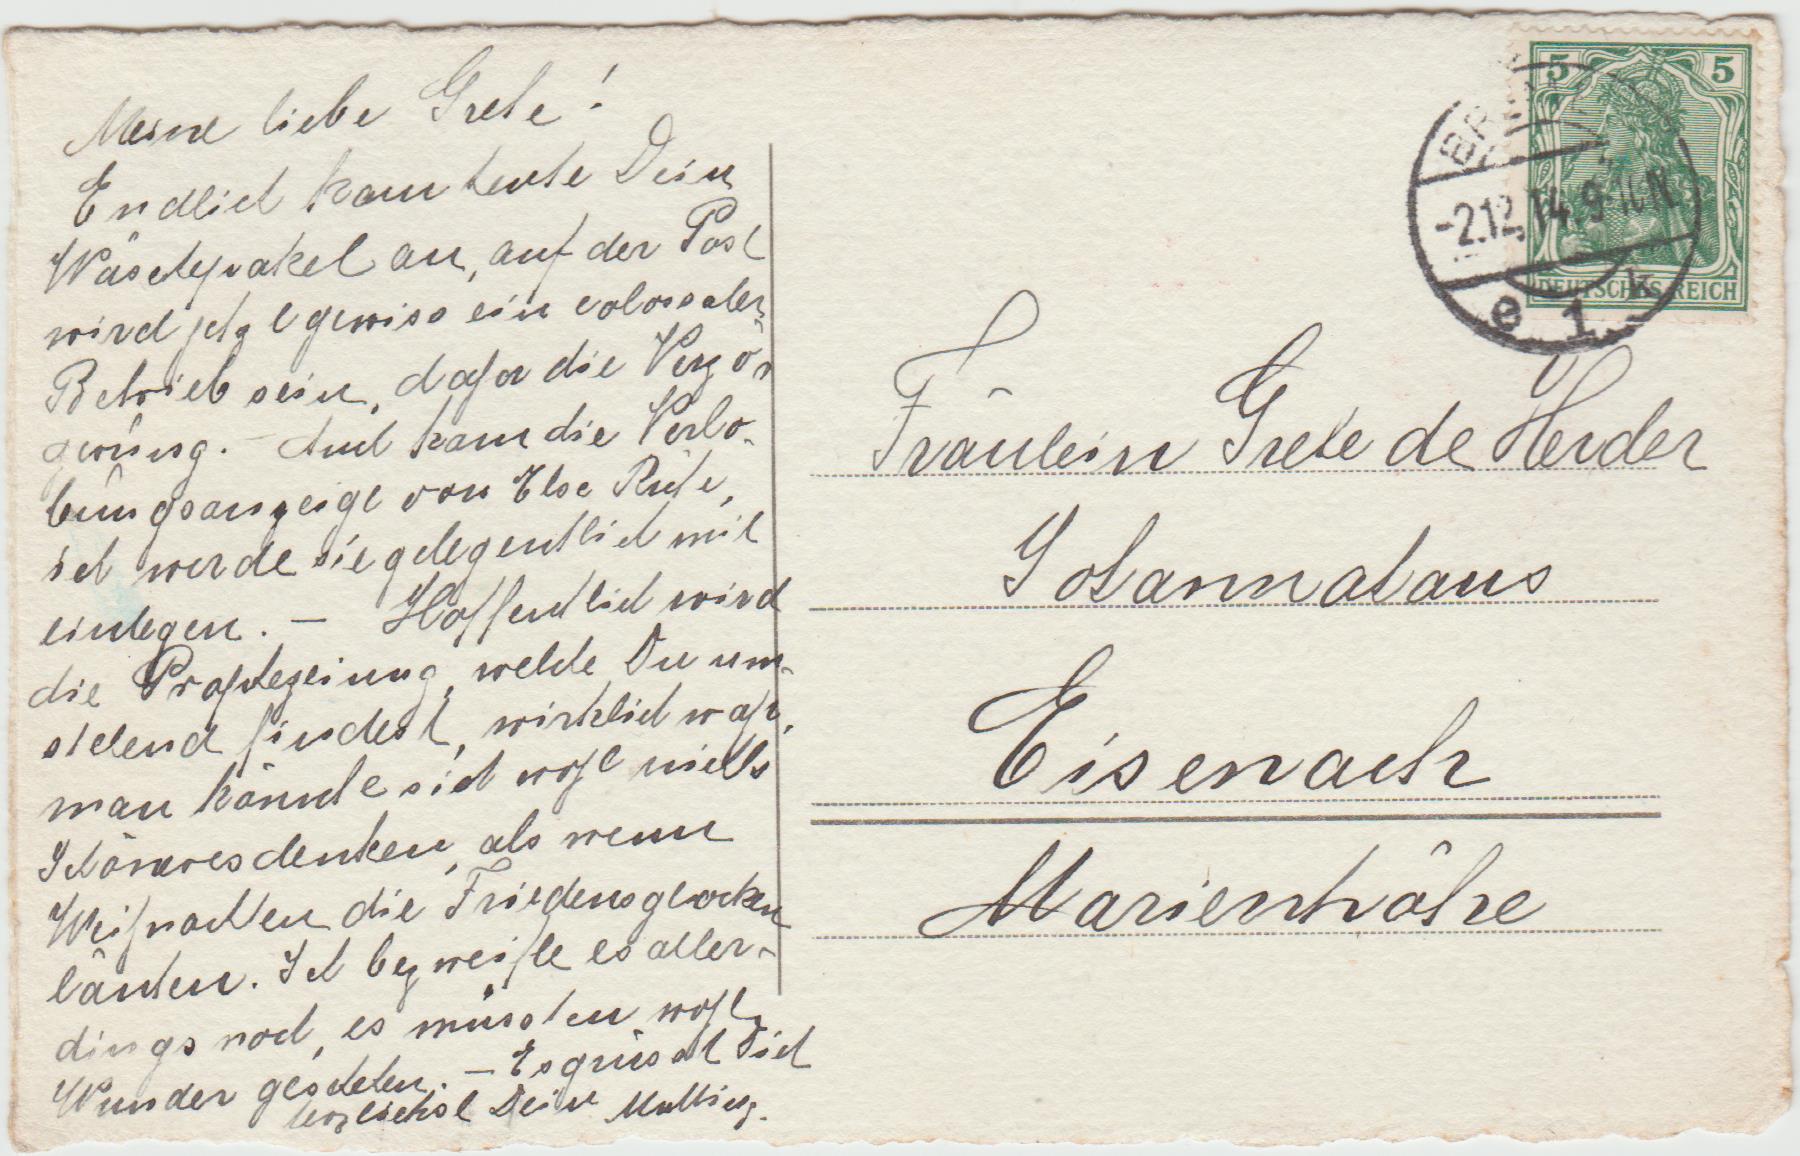 Meine liebe Grete!
Endlich kam heute Dein
Wäschepaket an, auf der Post
wird jetzt gewiss ein colossaler
Betrieb sein, daher die Verzö-
gerung. – Auch kam die Verlo-
bungsanzeige von Else
ich werde sie gelegentlich mit
einlegen. – Hoffentlich wird
die Prophezeiung, welche Du um-
stehend findest, wirklich wahr,
man könnte sich wohl nichts
Schöneres denken, als wenn
Weihnachten die Friedensglocken
läuten. Ich bezweifle es aller-
dings noch, es müssten wohl
Wunder geschehen. – Es grüsst Dich
herzlichst Dein Mutting.
5 5
DEUTSCHES REICH
-2.12.14 9-10N
e 1 k
Fräulein Grete de Herder
Johannahaus
Eisenach
Marienhöhe